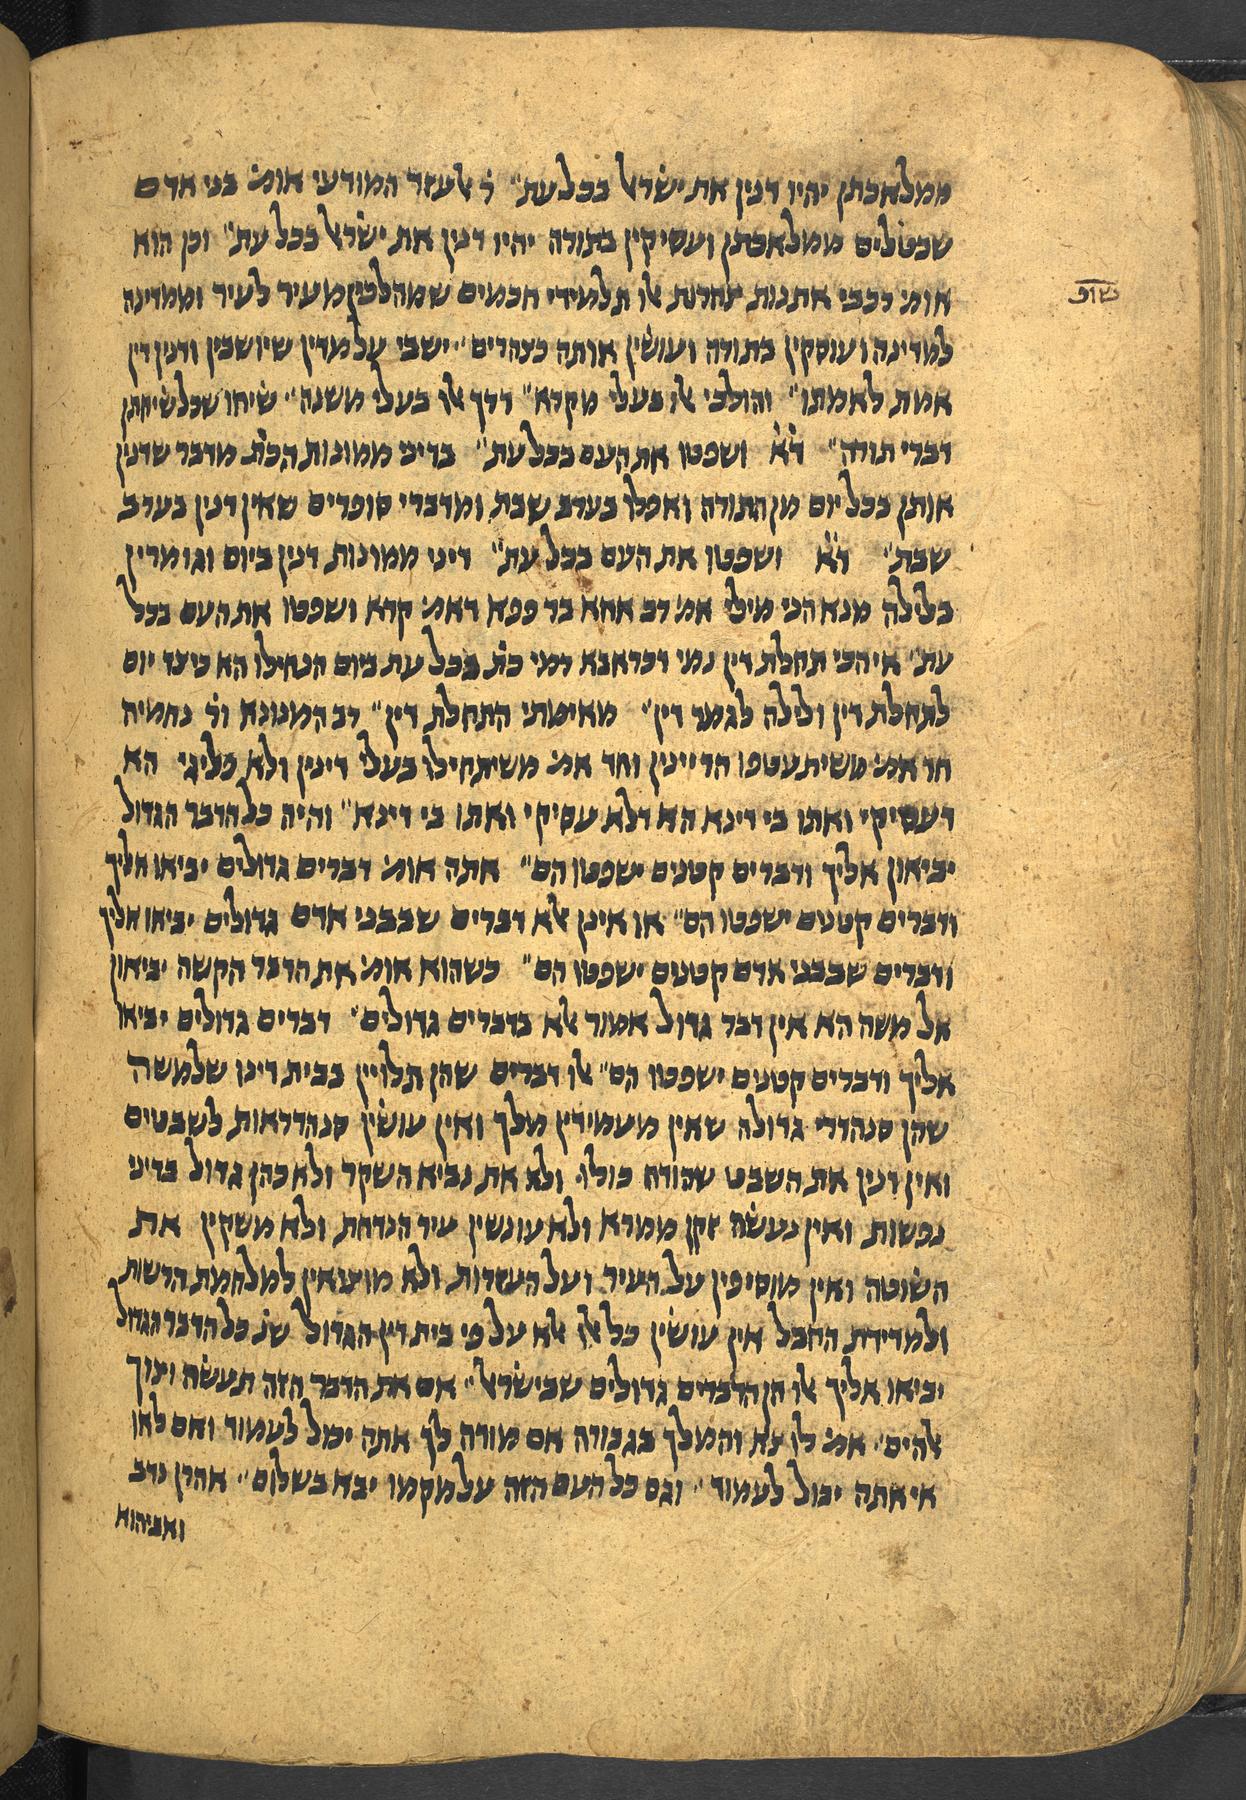 ממלאכתן יהיו דנין את ישראל בכל עת" ר' אלעזר המודעי אומ' בני אדם
שבטלים ממלאכתן ועסיקין בתורה יהיו דנין את ישראל בכל עת" וכן הוא
אומ' רכבי אתנות צחרות אלו תלמידי חכמים שמהלכין מעיר לעיר וממדינה
שופ'
למדינה ועוסקין בתורה ועושין אותה כצהרים" יושבי על מדין שיושבין ודנין דין
אמת לאמתו" והולכי אלו בעלי מקרא" דרך אלו בעלי משנה" שיחו שכל שיחתן
דברי תורה" ד"א ושפטו את העם בכל עת" בדיני ממונות הכת' מדבר שדנין
אותן בכל יום מן התורה ואפלו בערב שבת ומדברי סופרים שאין דנין בערב
שבת" ד"א ושפטו את העם בכל עת" דיני ממונות דנין ביום וגומרין
בלילה מנא הני מילי אמ' רב אחא בר פפא דאמ' קרא ושפטו את העם בכל
עת" אי הכי תחלת דין נמי דברי רבא רמי כת' בכל עת ביום הנחילו הא כיצד יום
לתחלת דין ולילה לגמר דין" מאימתי התחלת דין" רב המנונא ור' נחמיה
חד אמ' משיתעטפו הדיינין וחד אמ' משיתחילו בעלי דינין ולא פליגי הא
דעסיקי ואתו בי דינא הא דלא עסיקי ואתו בי דינא" והיה כל הדבר הגדול
יביאון אליך ודברים קטנים ישפטו הם" אתה אומ' דברים גדולים יביאו אליך
ודברים קטנים ישפטו הם" או אינן אלא דברים שבבני אדם גדולים יביאו אליך
ודברים שבבני אדם קטנים ישפטו הם" כשהוא אומ' את הדבר הקשה יביאון
אל משה הא אין דבר גדול אמור אלא בדברים גדולים" דברים גדולים יביאו
אליך ודברים קטנים ישפטו הם" אלו דברים שהן תלויין בבית דינו שלמשה
שהן סנהדרי גדולה שאין מעמידין מלך ואין עושין סנהדראות לשבטים
ואין דנין את השבט שהודח כולו ולא את נביא השקר ולא כהן גדול בדיני
נפשות ואין נעשה זקן ממרא ולא עונשין עיר הנדחת ולא משקין את
השוטה ואין מוסיפין על העיר ועל העזרות ולא מוציאין למלחמת הרשות
ולמדידת החבל אין עושין כל אלו אלא על פי בית דין הגדול שנ' כל הדבר הגדול
יביאו אליך אלו הן הדברים גדולים שבישראל" אם את הדבר הזה תעשה וצוך
אלהים" אמ' לו צא והמלך בגבורה אם מורה לך אתה יכול לעמוד ואם לאו
אי אתה יכול לעמוד" וגם כל העם הזה על מקמו יבא בשלום" אהרן נדב
ואביהוא